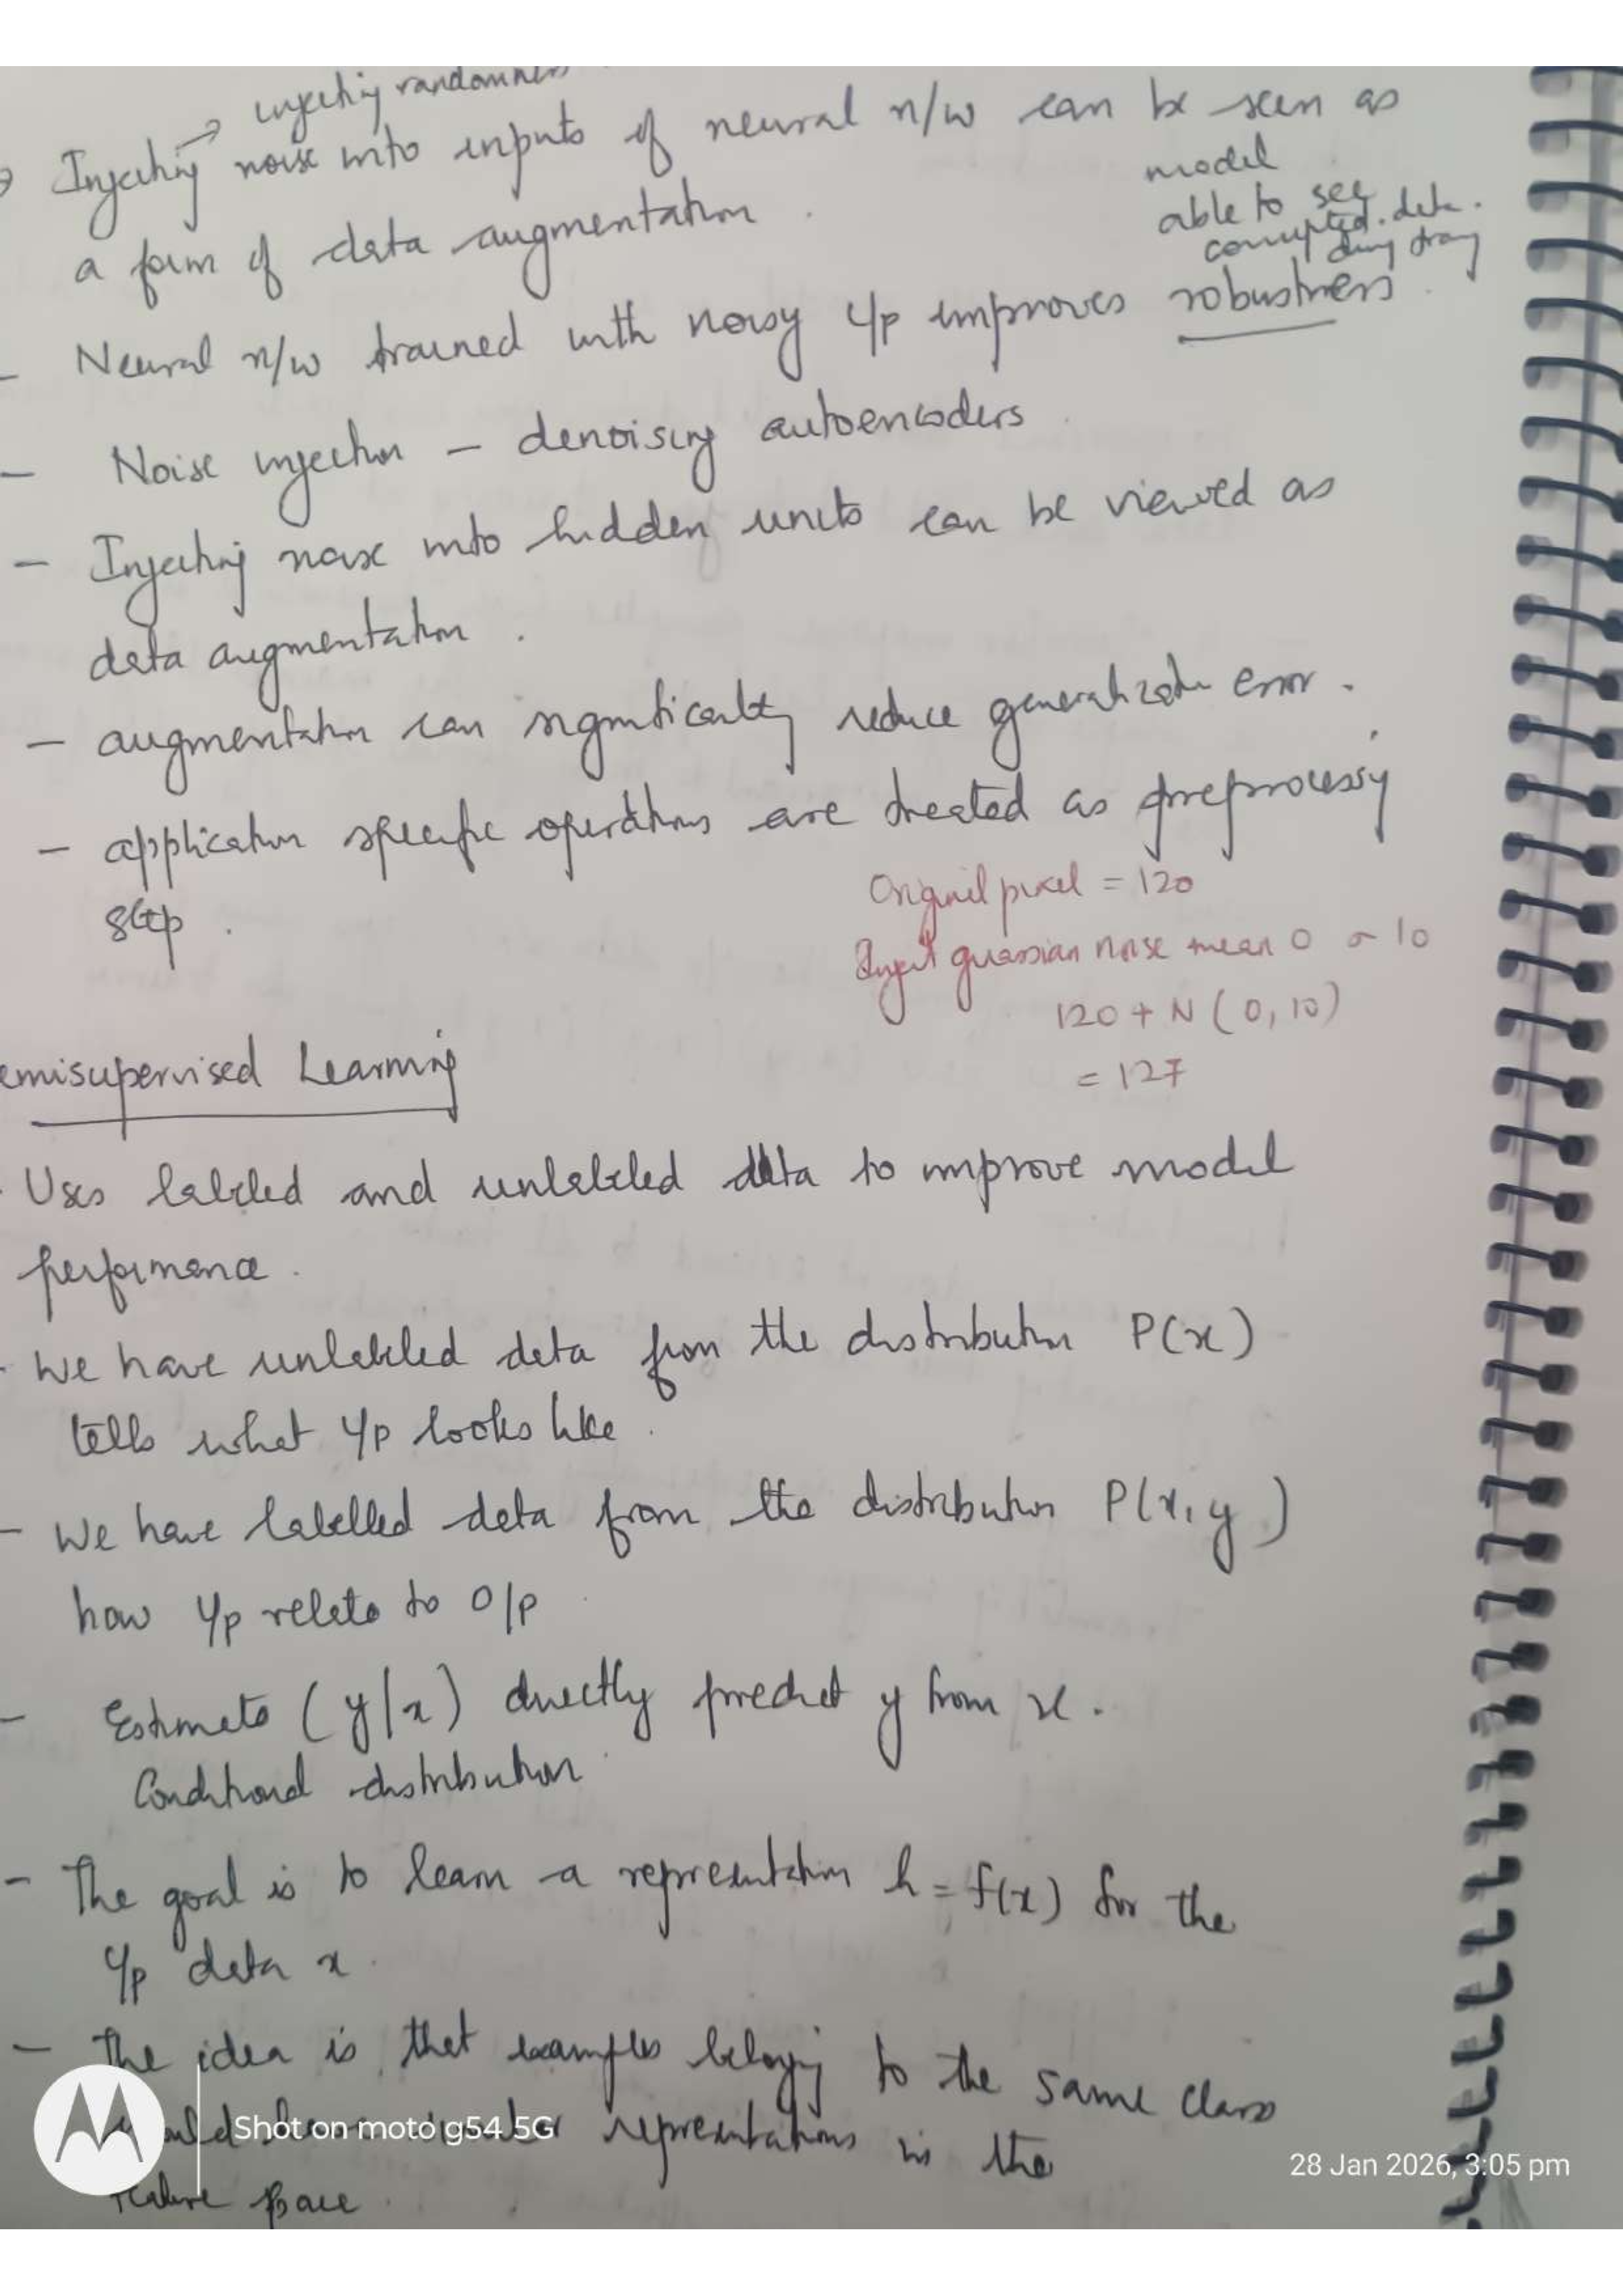 injecting randomness
→ Injecting noise into inputs of neural n/w can be seen as
a form of data augmentation.
model
able to see
corrupted data.
during
- Neural n/w trained with noisy i/p improves robustness.
- Noise injection - denoising autoencoders
- Injecting noise into hidden units can be viewed as
data augmentation.
- augmentation can significantly reduce generalization error.
- application specific operations are treated as preprocessing
step.
Original pixel = 120
guassian noise mean 0 σ 10
120 + N (0, 10)
= 127
emisupervised Learning
- Uses labeled and unlabeled data to improve model
performance.
- We have unlabeled data from the distribution P(x)
tells what i/p looks like.
- We have labelled data from the distribution P(x,y)
how i/p relate to o/p
- Estimate (y|x) directly predict y from x.
Conditional distribution
- The goal is to learn a representation h = f(x) for the
i/p data x.
- The idea is that examples belongig to the same class
representations in the
feature space.
Shot on moto g54 5G
28 Jan 2026, 3:05 pm